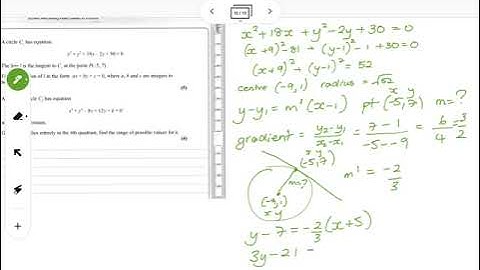 A circle C₁ has equation
x² + y² + 18x − 2y + 30 = 0
The line l is the tangent to C₁ at the point P(−5, 7).
of l in the form ax + by + c = 0, where a, b and c are integers to
(5)
C₂ has equation
x² + y² − 8x + 12y + k = 0
entirely in the 4th quadrant, find the range of possible values for k.
(4)
x² + 18x + y² − 2y + 30 = 0
(x + 9)² − 81 + (y − 1)² − 1 + 30 = 0
(x + 9)² + (y − 1)² = 52
centre (−9, 1) radius = √52
y − y₁ = m'(x − 1) pt (−5, 7) m = ?
x y
gradient = y₂ − y₁ / x₂ − x₁ = 7 − 1 / −5 − −9 = 6 / 4 = 3 / 2
x y
(−5, 7)
m = ?
m' = −2 / 3
(−9, 1)
x y
y − 7 = −2/3 (x + 5)
3y − 21 =